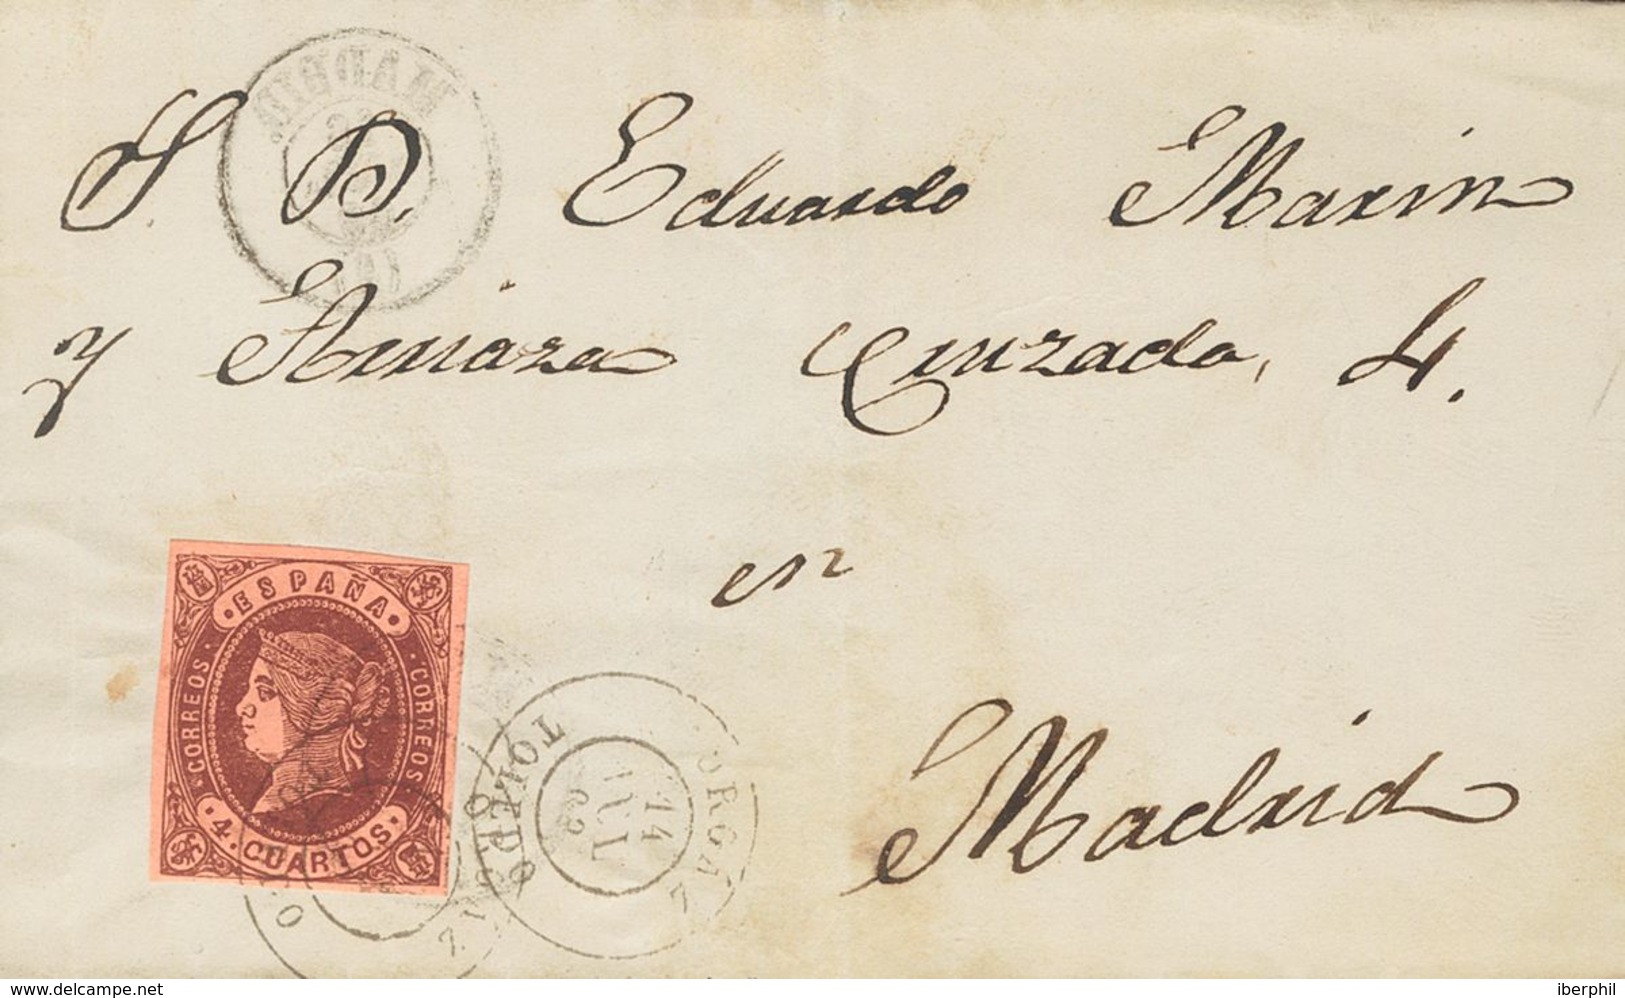 MADRID
S. D. Eduardo Marin
y Arniaza Cruzada, 4.
en
Madrid
ESPAÑA
CORREOS
CORREOS
4. CUARTOS.
ORGAZ
14
JUL
62
TOLEDO
www.delcampe.net
iberphil